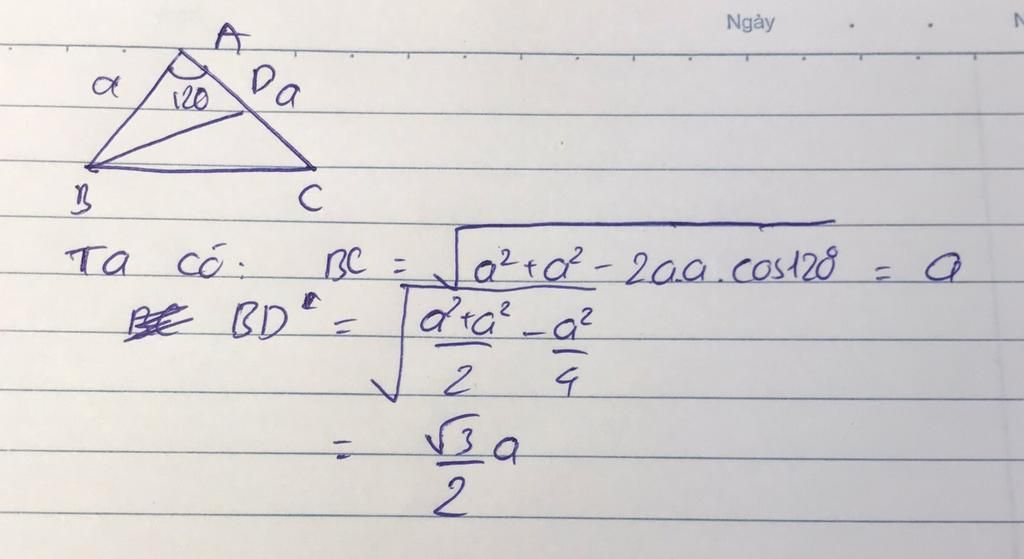 Ngày . . N
A
a 120 D a
B C
Ta có: BC = √(a² + a² - 2a.a.cos120°) = a
BD = √((a² + a²)/2 - a²/4)
= √3/2 a